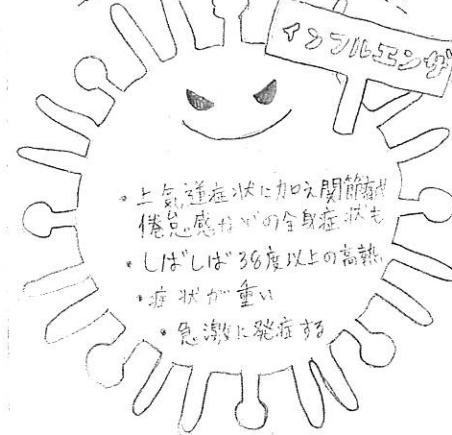 インフルエンザ
・上気道症状に加え関節痛や
倦怠感などの全身症状も
・しばしば38度以上の高熱
・症状が重い
・急激に発症する